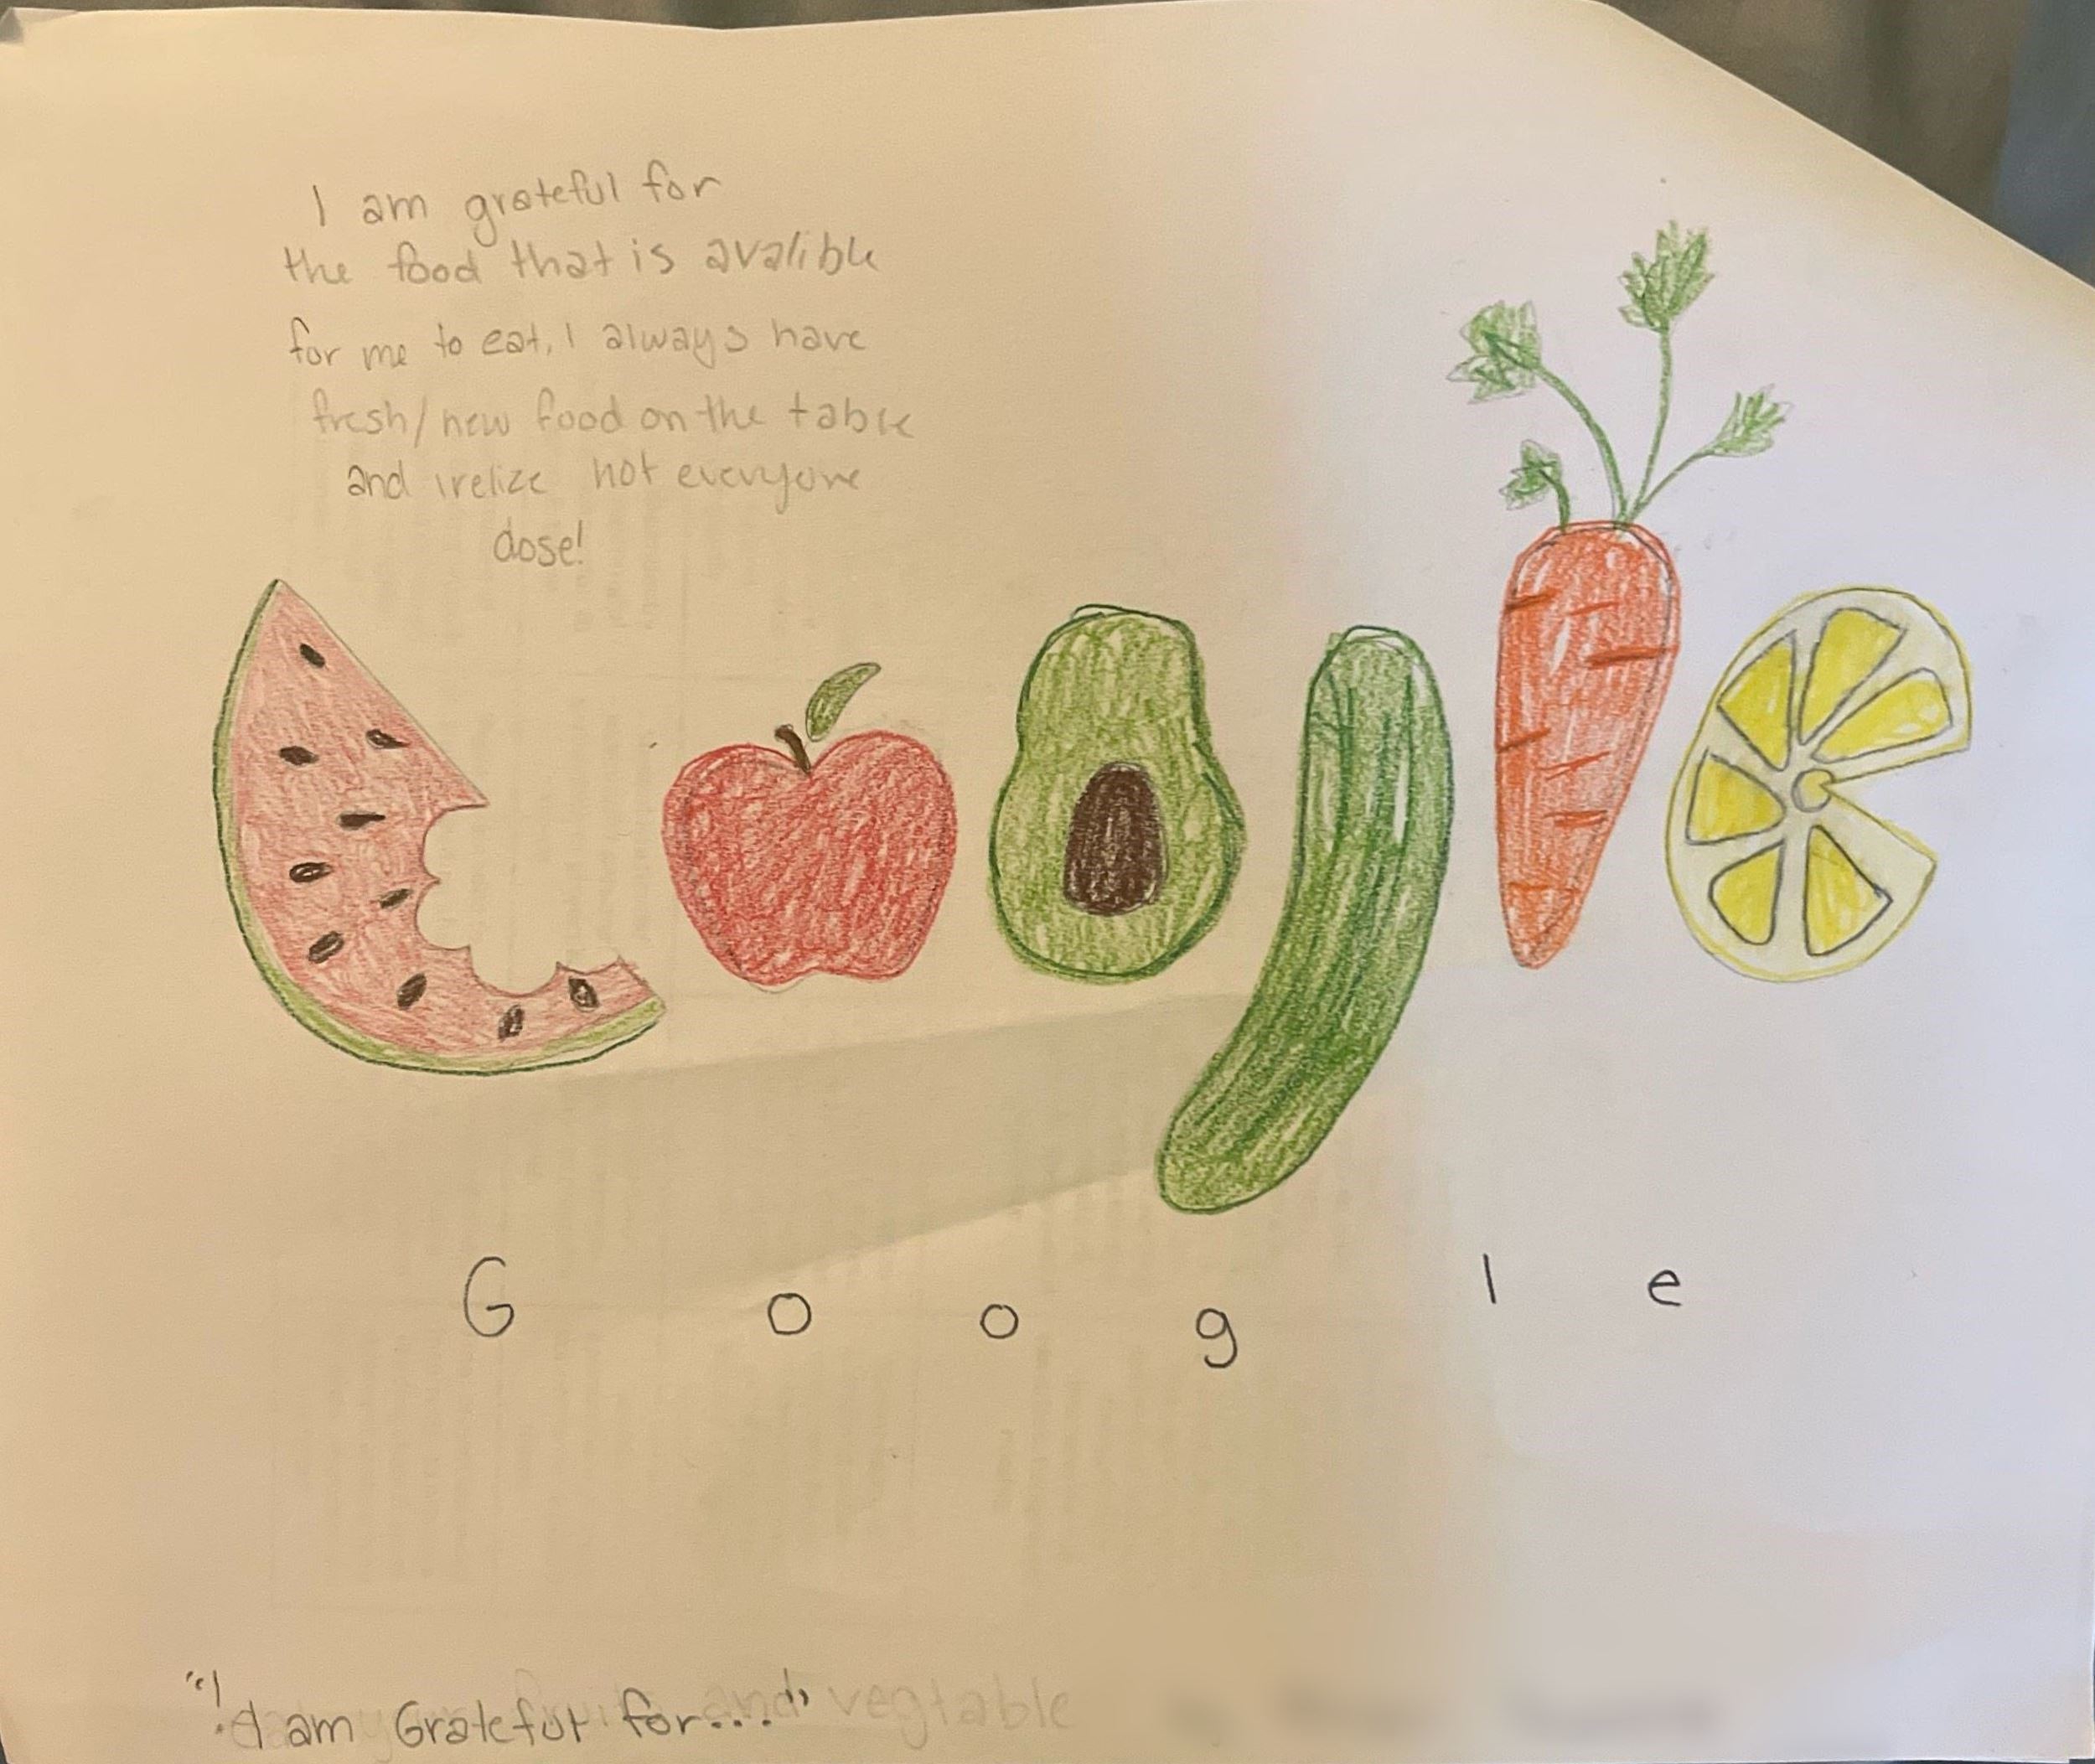 I am grateful for
the food that is avalible
for me to eat, I always have
fresh/new food on the table
and irelize not everyone
dose!
G o o g l e
"I am Grateful for..." and vegtable